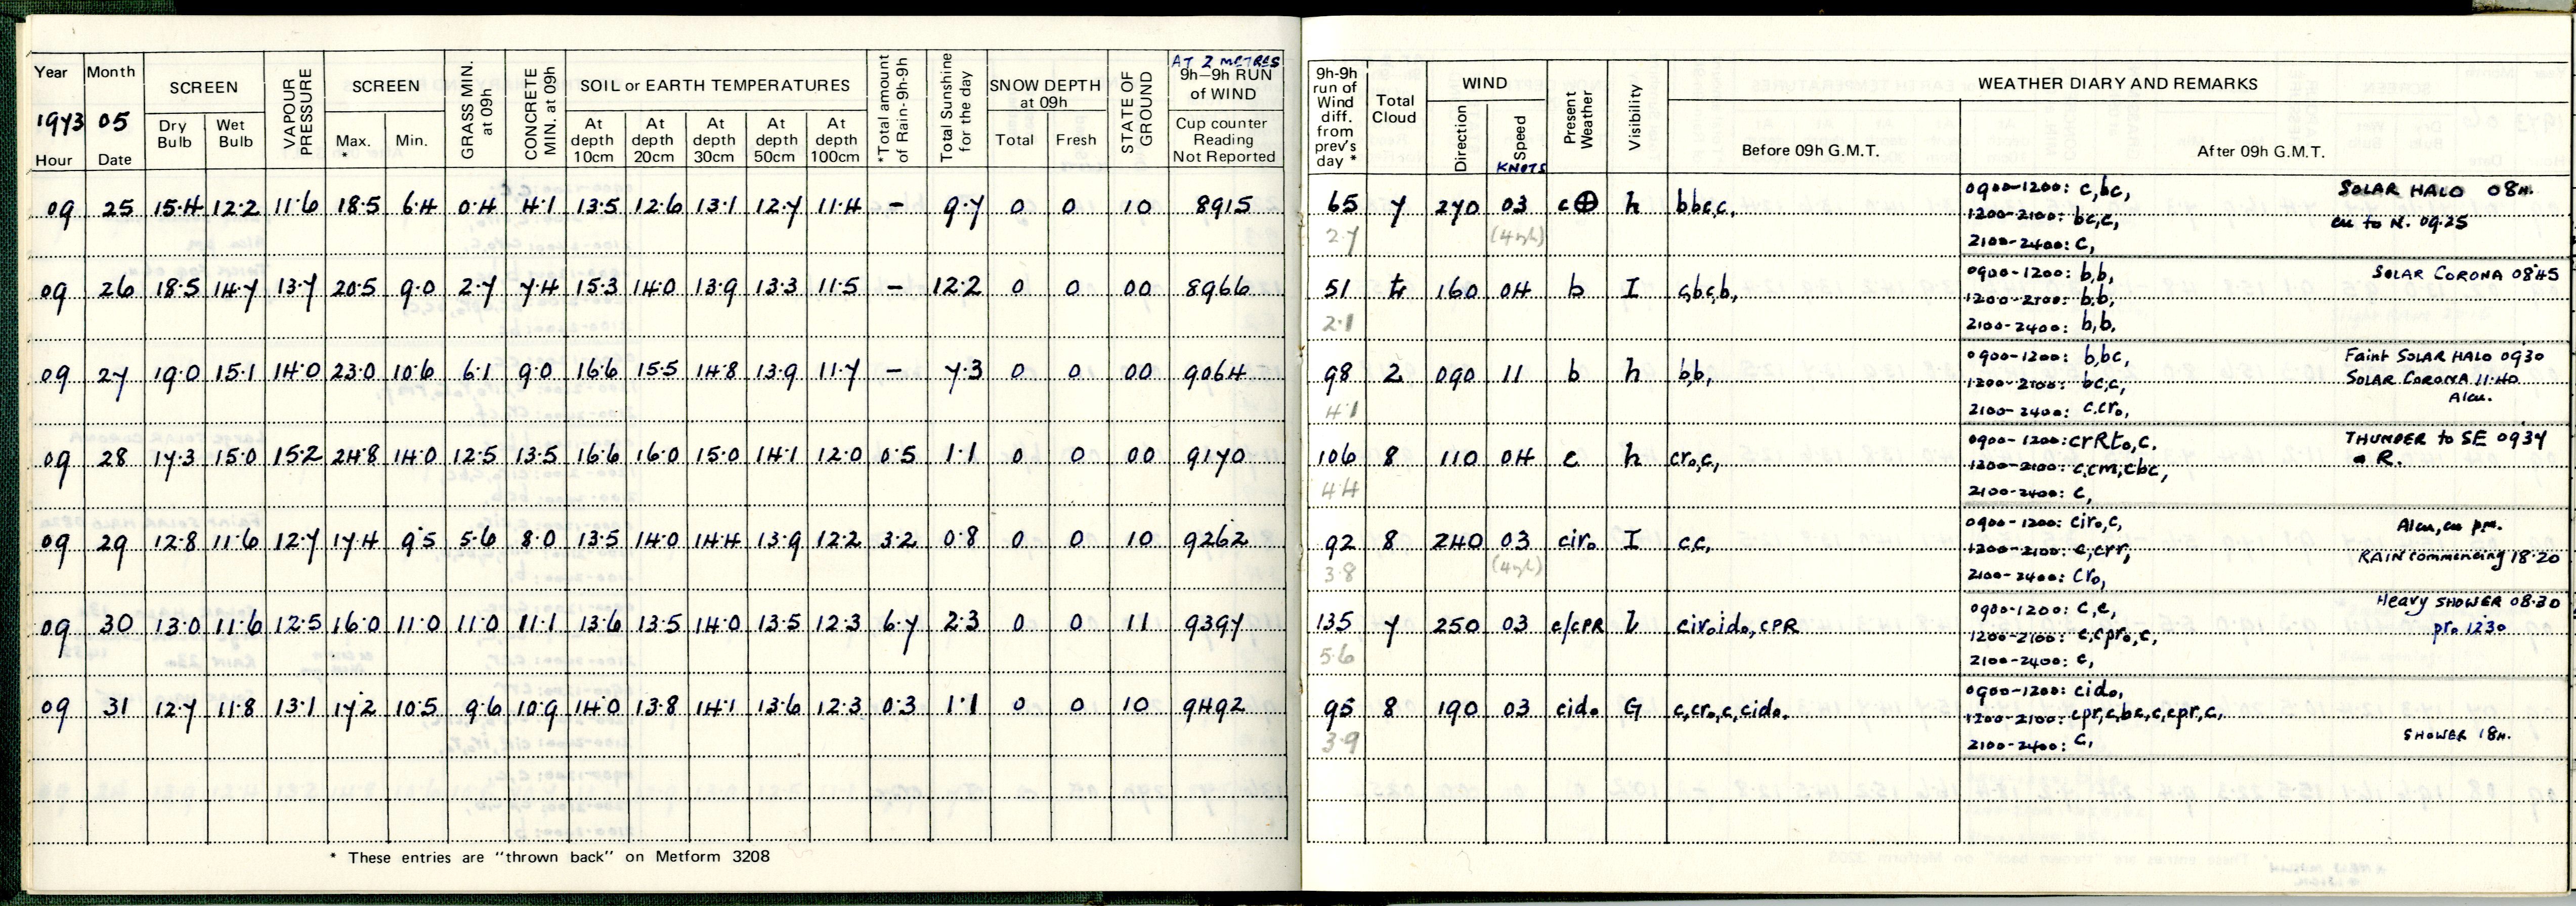 AT 2 METRES
Year Month SCREEN VAPOUR PRESSURE SCREEN GRASS MIN. at 09h CONCRETE MIN. at 09h SOIL or EARTH TEMPERATURES *Total amount of Rain-9h-9h Total Sunshine for the day SNOW DEPTH at 09h STATE OF GROUND 9h–9h RUN of WIND
1973 05 Dry Bulb Wet Bulb Max. * Min. At depth 10cm At depth 20cm At depth 30cm At depth 50cm At depth 100cm Total Fresh Cup counter Reading Not Reported
Hour Date
09 25 15.4 12.2 11.6 18.5 6.4 0.4 4.1 13.5 12.6 13.1 12.7 11.4 – 9.7 0 0 10 8915
09 26 18.5 14.7 13.7 20.5 9.0 2.7 7.4 15.3 14.0 13.9 13.3 11.5 – 12.2 0 0 00 8966
09 27 19.0 15.1 14.0 23.0 10.6 6.1 9.0 16.6 15.5 14.8 13.9 11.7 – 7.3 0 0 00 9064
09 28 17.3 15.0 15.2 24.8 14.0 12.5 13.5 16.6 16.0 15.0 14.1 12.0 0.5 1.1 0 0 00 9170
09 29 12.8 11.6 12.7 17.4 9.5 5.6 8.0 13.5 14.0 14.4 13.9 12.2 3.2 0.8 0 0 10 9262
09 30 13.0 11.6 12.5 16.0 11.0 11.0 11.1 13.6 13.5 14.0 13.5 12.3 6.7 2.3 0 0 11 9397
09 31 12.7 11.8 13.1 17.2 10.5 9.6 10.9 14.0 13.8 14.1 13.6 12.3 0.3 1.1 0 0 10 9492
* These entries are "thrown back" on Metform 3208
9h-9h run of Wind diff. from prev's day * Total Cloud WIND Present Weather Visibility WEATHER DIARY AND REMARKS
Direction Speed KNOTS Before 09h G.M.T. After 09h G.M.T.
65 7 270 03 c⊕ h bbc,c, 0900-1200: c,bc, SOLAR HALO 08H.
2.7 1200-2100: bc,c, cu to N. 09.25
2100-2400: c,
51 tr 160 04 b I c,bc,b, 0900-1200: b,b, SOLAR CORONA 0845
2.1 1200-2100: b,b,
2100-2400: b,b,
98 2 090 11 b h b,b, 0900-1200: b,bc, Faint SOLAR HALO 0930
4.1 1200-2100: bc,c, SOLAR CORONA 11.40
Alcu.
2100-2400: c.cr₀,
106 8 110 04 c h cr₀,c, 0900-1200: crRt₀,c. THUNDER to SE 0937
4.4 1200-2100: c,cm,cbc, R.
2100-2400: c,
92 8 240 03 cir₀ I c,c, 0900-1200: cir₀,c, Alcu,cu pm.
3.8 1200-2100: c,crr, RAIN commencing 18.20
2100-2400: cr₀,
135 7 250 03 c/cPR cir₀id₀,cPR 0900-1200: c,c, Heavy SHOWER 08.30
5.6 1200-2100: c,cpr₀,c, pr₀ 1230
2100-2400: c,
95 8 190 03 cid₀ G c,cr₀,c,cid₀. 0900-1200: cid₀,
3.9 1200-2100: cpr,c,bc,c,cpr,c,
2100-2400: c, SHOWER 18H.